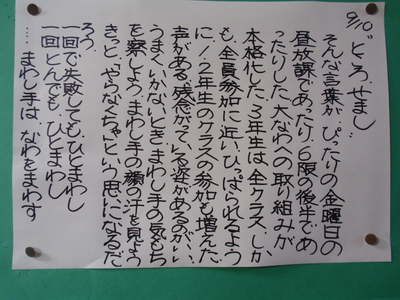 9/10 "ところせまし"
そんな言葉が、ぴったりの金曜日の
昼放課であったり、6限の後半であ
ったりした。大なわへの取り組みが
本格化した。3年生は全クラス、しか
も、全員参加に近い。ひっぱられるよう
に1.2年生のクラスの参加も増えた。
声がある。残念がっている姿があるのがいい。
うまくいかないとき、まわし手の気もち
を察しよう。まわし手の額の汗を見よう
きっと、やらなくちゃという思いになるだ
ろう。
一回で失敗しても、ひとまわし
一回とんでも、ひとまわし
まわし手は なわをまわす